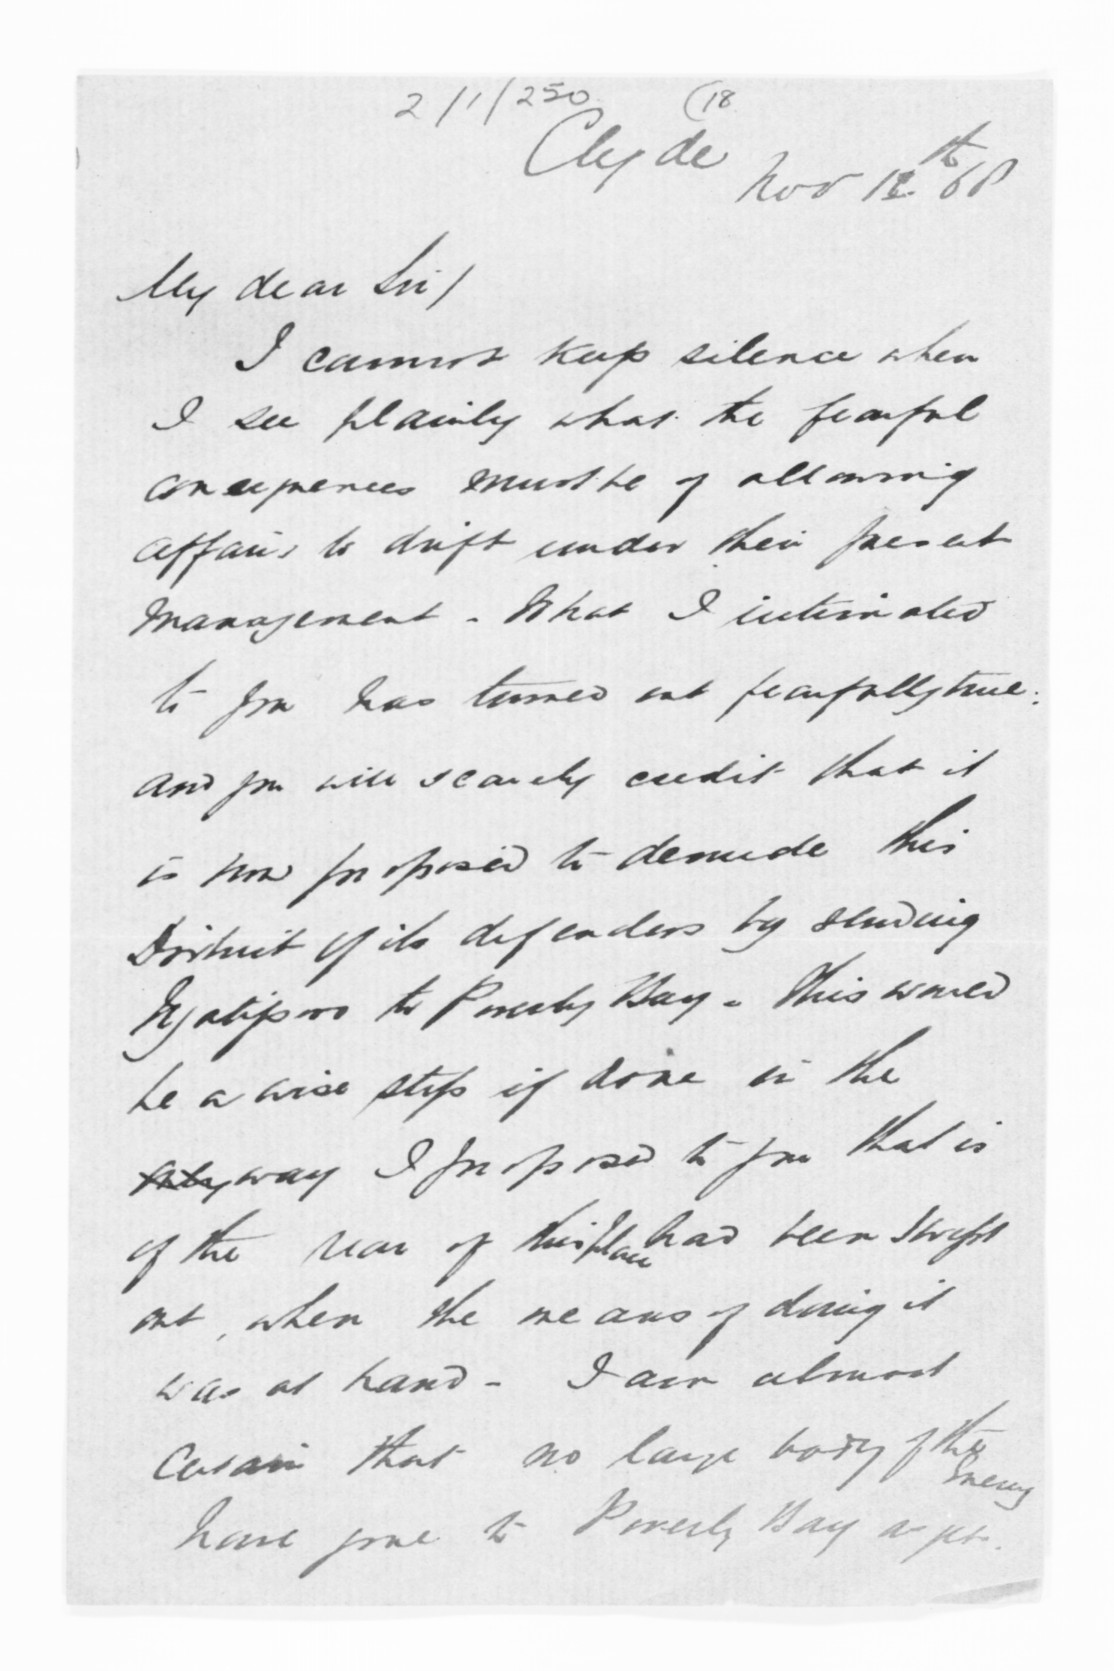 2/1/250 (18
Clyde
Nov 12th 68
My dear Sir/
I cannot keep silence when
I see plainly what the fearful
consequences must be of allowing
affairs to drift under their present
management - What I intimated
to you has turned out fearfully true.
and you will scarcely credit that it
is now proposed to denude this
District of its defenders by sending
Ngatiporo to Poverty Bay - This would
be a wise step if done in the
way I proposed to you that is
if the rear of this place had been swept
out, when the means of doing it
was at hand - I am almost
certain that no large body of the Enemy
have gone to Poverty Bay as yet.